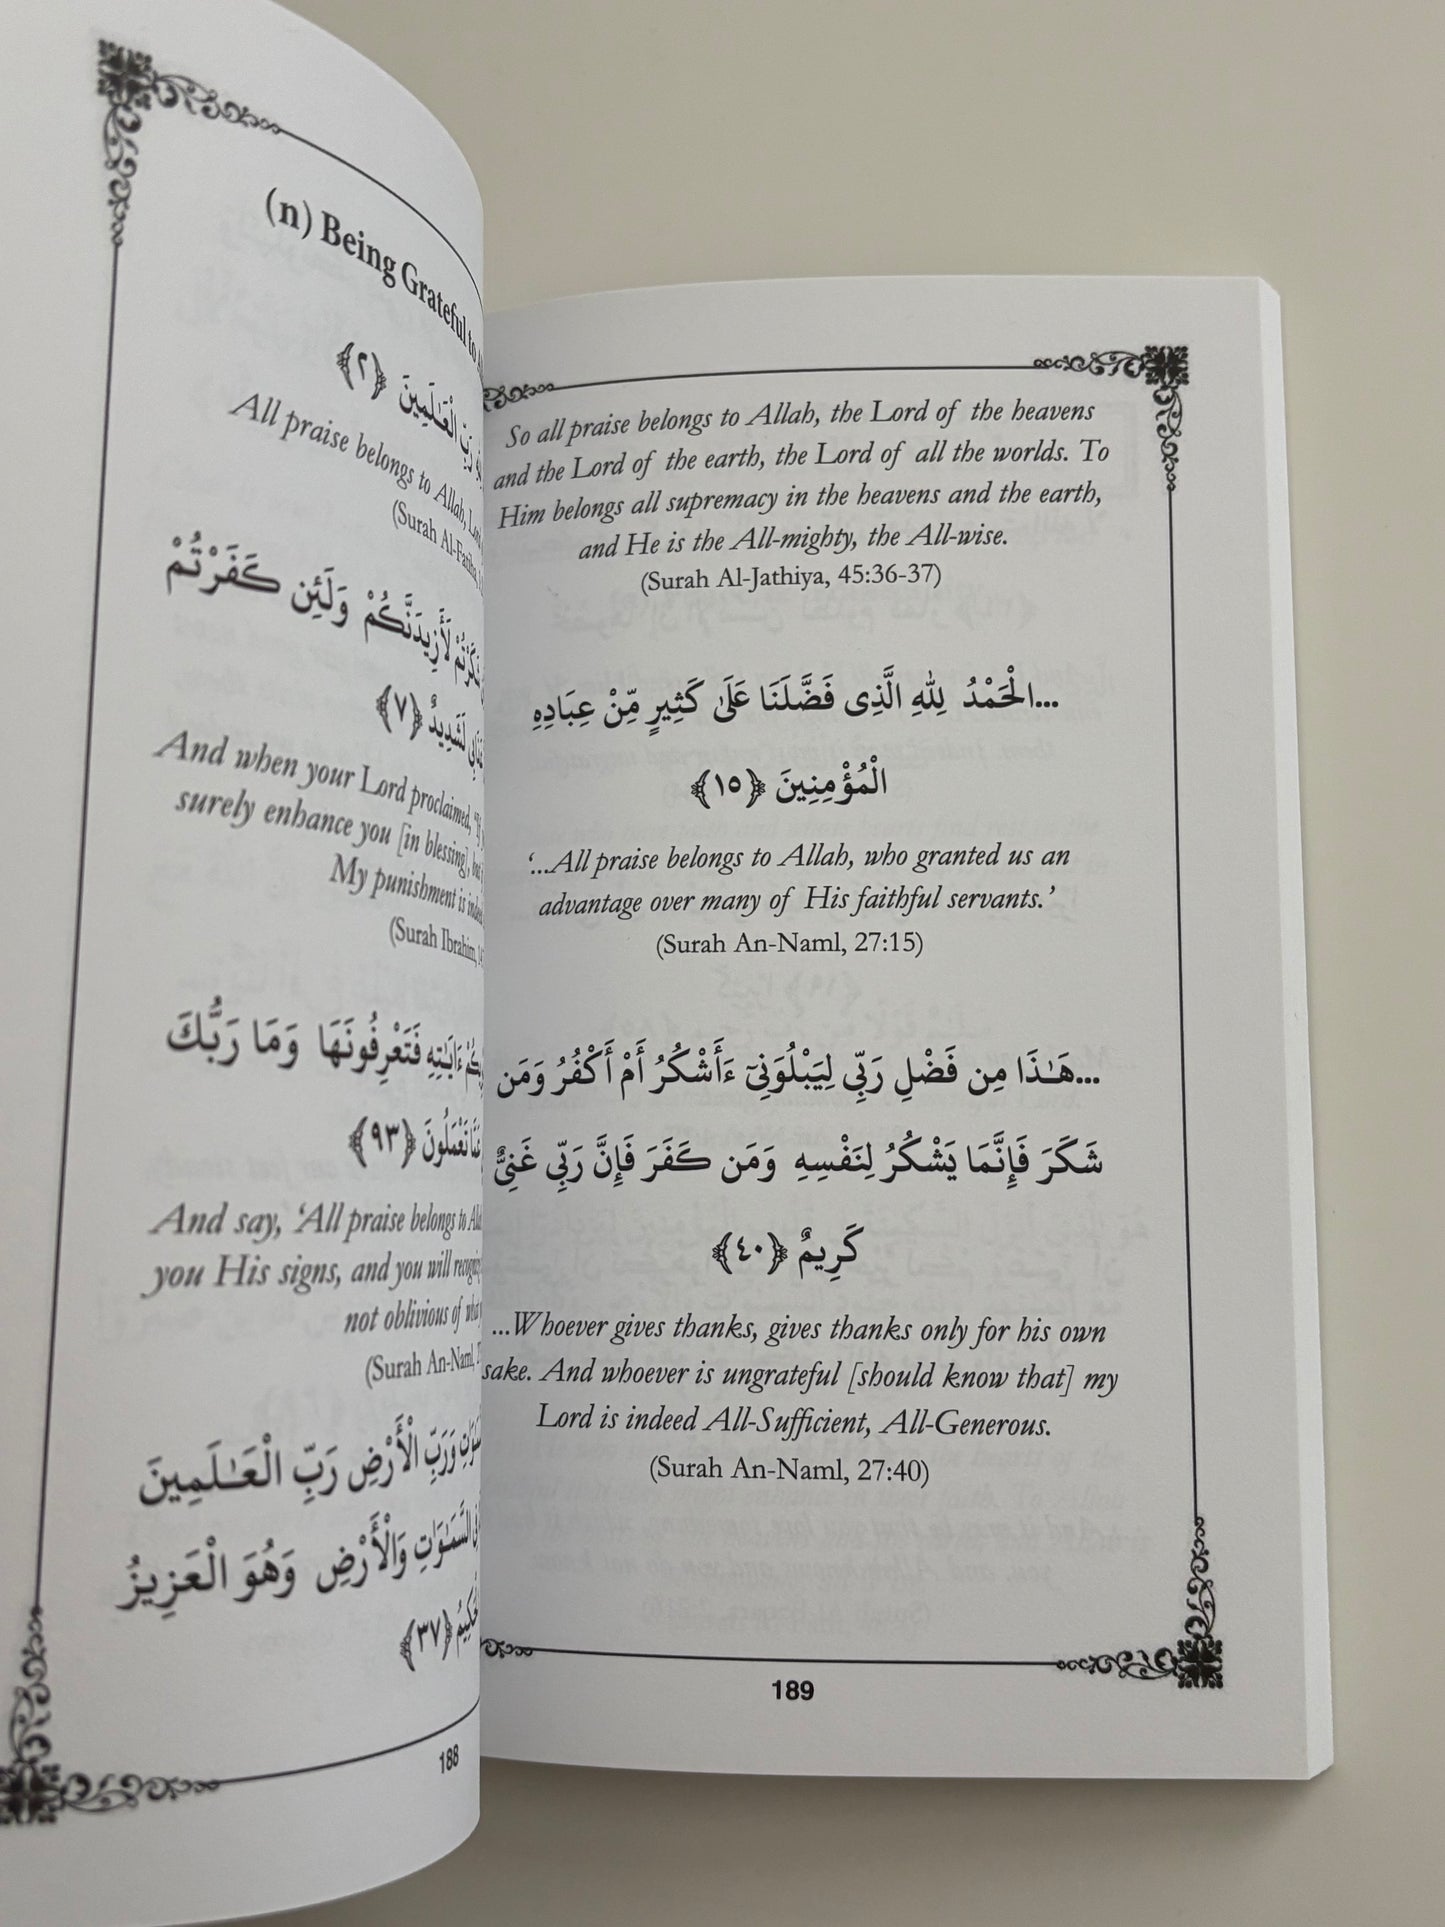 (n) Being Grateful to
رَبِّ الْعَـٰلَمِينَ ﴿٢﴾
All praise belongs to Allah, Lord
(Surah Al-Fatiha,
لَأَزِيدَنَّكُمْ وَلَئِن كَفَرْتُمْ
لَشَدِيدٌ ﴿٧﴾
And when your Lord proclaimed,
surely enhance you [in blessing], but
My punishment is indeed
(Surah Ibrahim,
ءَايَـٰتِهِ فَتَعْرِفُونَهَا وَمَا رَبُّكَ
عَمَّا تَعْمَلُونَ ﴿٩٣﴾
And say, ‘All praise belongs to
you His signs, and you will
not oblivious of what
(Surah An-Naml,
وَرَبِّ الْأَرْضِ رَبِّ الْعَـٰلَمِينَ
السَّمَـٰوَٰتِ وَالْأَرْضِ وَهُوَ الْعَزِيزُ
﴿٣٧﴾
188
So all praise belongs to Allah, the Lord of the heavens
and the Lord of the earth, the Lord of all the worlds. To
Him belongs all supremacy in the heavens and the earth,
and He is the All-mighty, the All-wise.
(Surah Al-Jathiya, 45:36-37)
...الْحَمْدُ لِلَّهِ الَّذِى فَضَّلَنَا عَلَىٰ كَثِيرٍ مِّنْ عِبَادِهِ
الْمُؤْمِنِينَ ﴿١٥﴾
‘...All praise belongs to Allah, who granted us an
advantage over many of His faithful servants.’
(Surah An-Naml, 27:15)
...هَـٰذَا مِن فَضْلِ رَبِّى لِيَبْلُوَنِىٓ ءَأَشْكُرُ أَمْ أَكْفُرُ وَمَن
شَكَرَ فَإِنَّمَا يَشْكُرُ لِنَفْسِهِ وَمَن كَفَرَ فَإِنَّ رَبِّى غَنِىٌّ
كَرِيمٌ ﴿٤٠﴾
...Whoever gives thanks, gives thanks only for his own
sake. And whoever is ungrateful [should know that] my
Lord is indeed All-Sufficient, All-Generous.
(Surah An-Naml, 27:40)
189